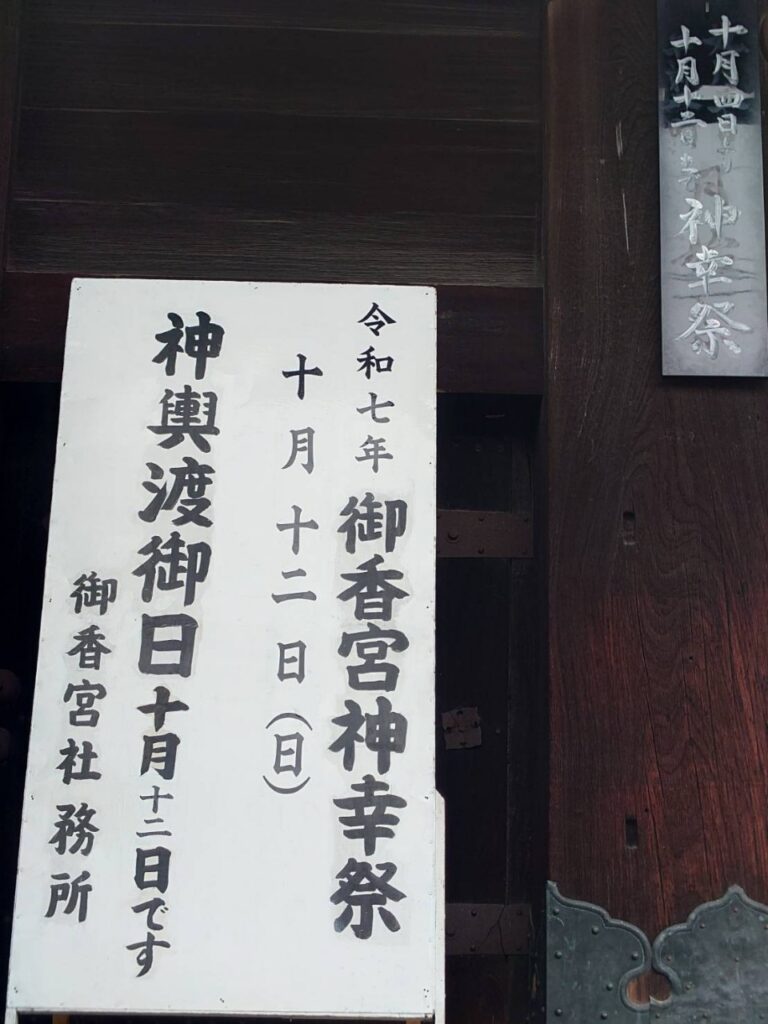 十月四日より
十月十二日まで
神幸祭
令和七年 御香宮神幸祭
十月十二日(日)
神輿渡御日十月十二日です
御香宮社務所